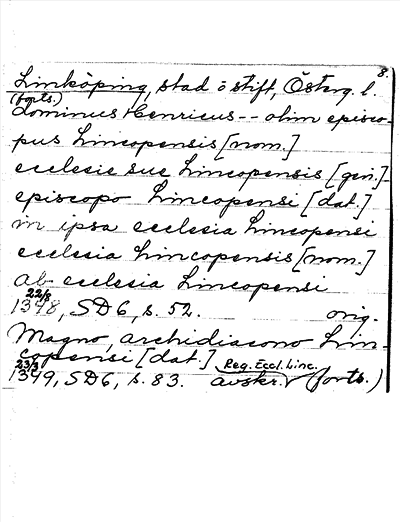 8.
Linköping, stad o stift, Österg. l.
(forts.)
dominus Henricus -- olim episco-
pus Lincopensis [nom.]
ecclesie sue Lincopensis [gen.]
episcopo Lincopensi [dat.]
in ipsa ecclesia Lincopensi
ecclesia Lincopensis [nom.]
ab ecclesia Lincopensi
22/8
1348, SD6, s. 52. orig.
Magno, archidiacono Lin-
copensi [dat.]
23/3 Reg. Eccl. Linc.
1349, SD6, s. 83. avskr. (forts.)